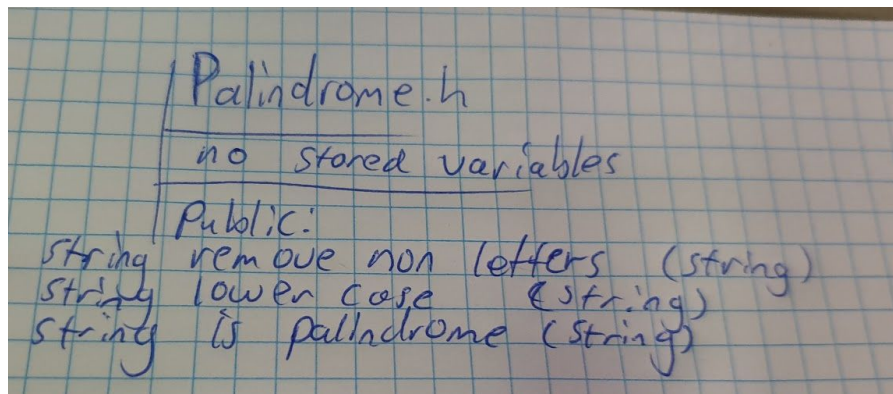 Palindrome.h
no stored variables
Public:
string remove non letters (string)
string lower case (string)
string is palindrome (string)